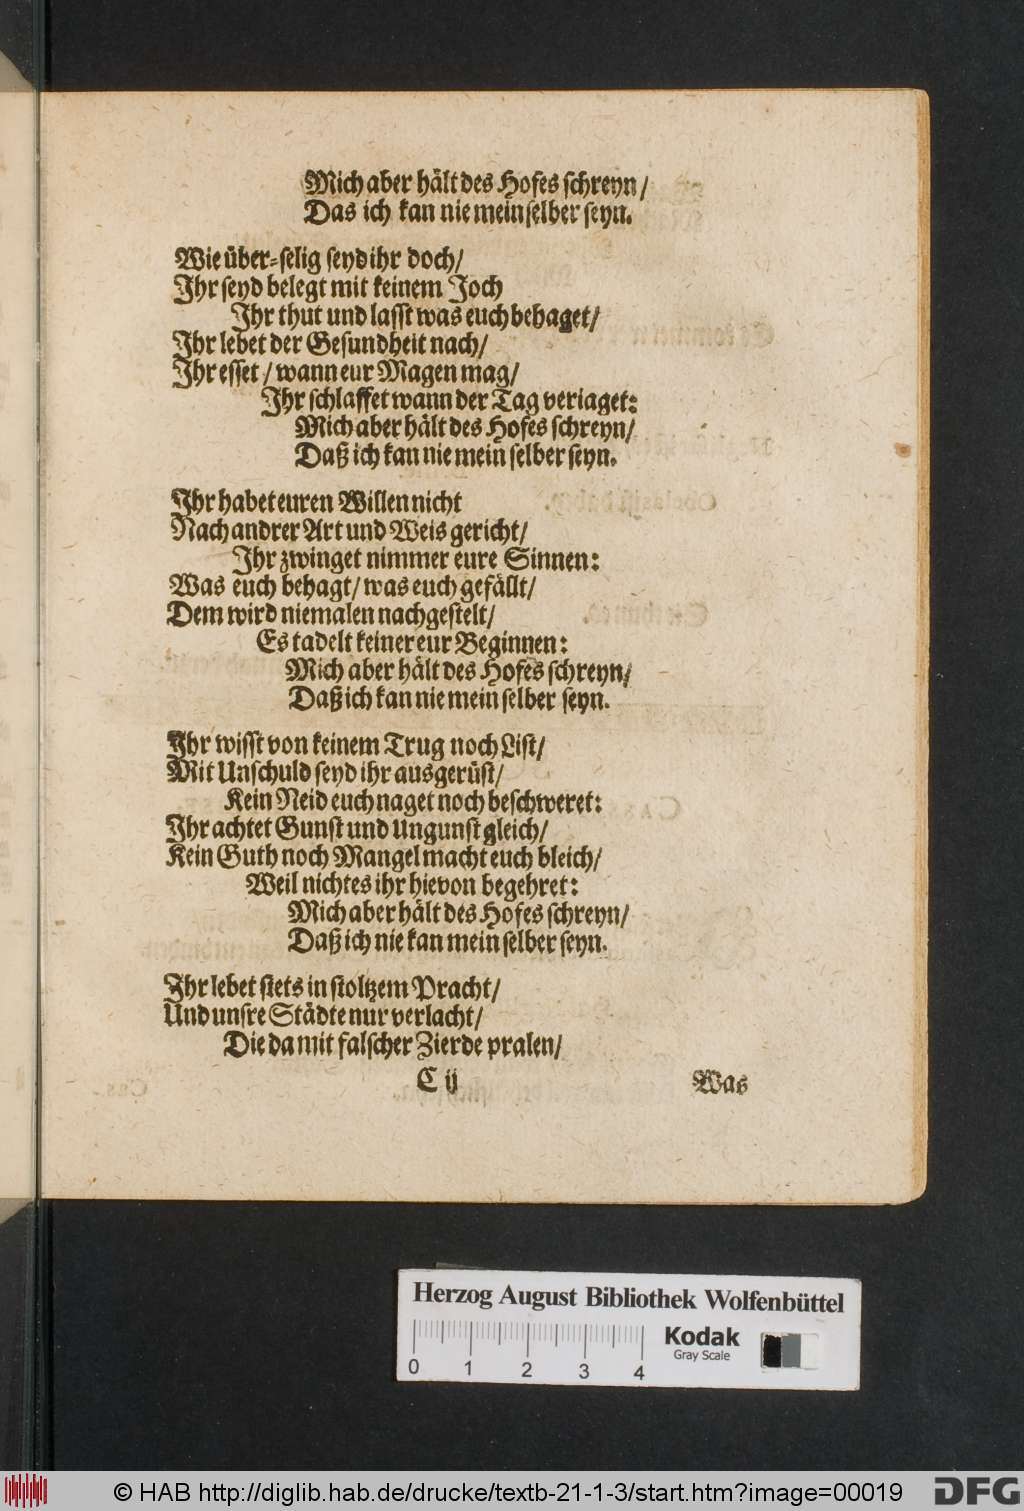 Mich aber hält des Hofes schreyn/
Das ich kan nie mein selber seyn.
Wie über-selig seyd ihr doch/
Ihr seyd belegt mit keinem Joch
Ihr thut und lasst was euch behaget/
Ihr lebet der Gesundheit nach/
Ihr esset / wann eur Magen mag/
Ihr schlaffet wann der Tag veriaget:
Mich aber hält des Hofes schreyn/
Daß ich kan nie mein selber seyn.
Ihr habet euren Willen nicht
Nach andrer Art und Weis gericht/
Ihr zwinget nimmer eure Sinnen:
Was euch behagt/ was euch gefällt/
Dem wird niemalen nachgestelt/
Es tadelt keiner eur Beginnen:
Mich aber hält des Hofes schreyn/
Daß ich kan nie mein selber seyn.
Ihr wisst von keinem Trug noch List/
Mit Unschuld seyd ihr ausgerüst/
Kein Neid euch naget noch beschweret:
Ihr achtet Gunst und Ungunst gleich/
Kein Guth noch Mangel macht euch bleich/
Weil nichtes ihr hievon begehret:
Mich aber hält des Hofes schreyn/
Daß ich nie kan mein selber seyn.
Ihr lebet stets in stoltzem Pracht/
Und unsre Städte nur verlacht/
Die da mit falscher Zierde pralen/
C ij Was
Herzog August Bibliothek Wolfenbüttel
0 1 2 3 4
Kodak
Gray Scale
© HAB http://diglib.hab.de/drucke/textb-21-1-3/start.htm?image=00019
DFG